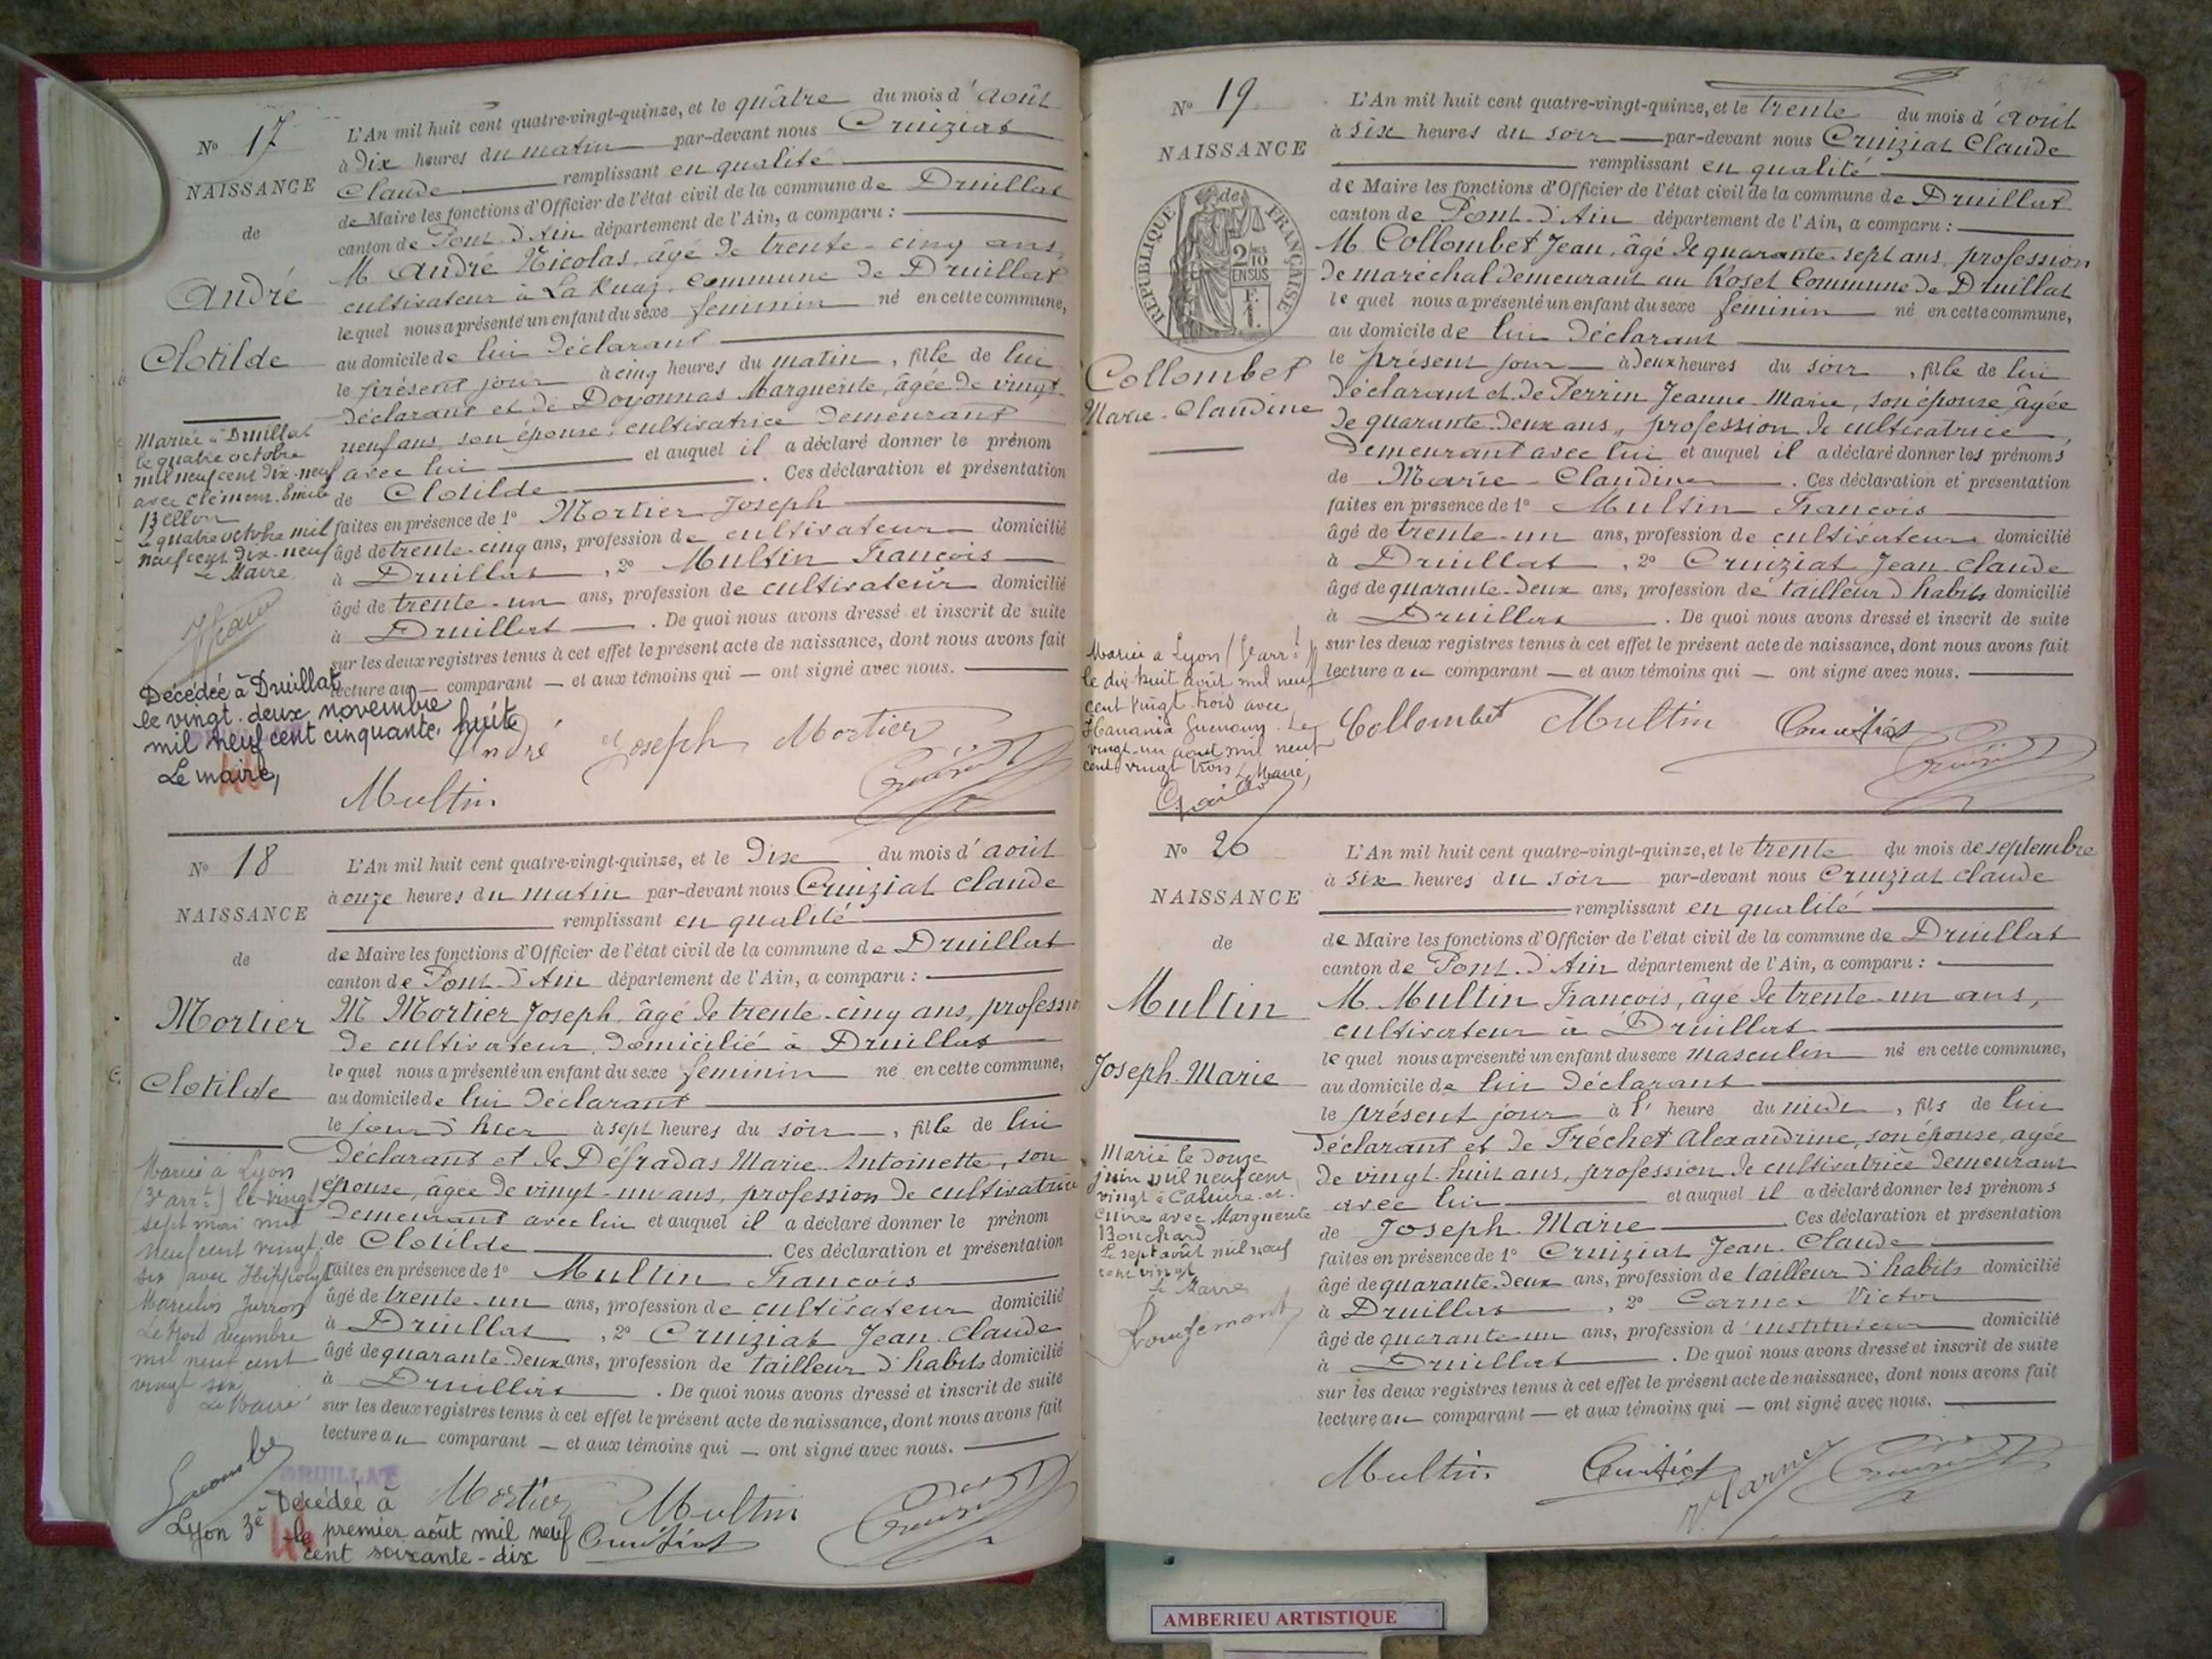 N° 17
NAISSANCE
de
André
Clotilde
L'An mil huit cent quatre-vingt-quinze, et le quatre du mois d'août
à dix heures du matin par-devant nous Cruiziat
Claude remplissant en qualité
de Maire les fonctions d'Officier de l'état civil de la commune de Druillat
canton de Pont-d'Ain département de l'Ain, a comparu :
M André Nicolas, âgé de trente-cinq ans,
cultivateur à La Ruaz commune de Druillat
lequel nous a présenté un enfant du sexe féminin né en cette commune,
au domicile de lui déclarant
le présent jour à cinq heures du matin, fille de lui
déclarant et de Doyonnas Marguerite, âgée de vingt-
neuf ans, son épouse, cultivatrice demeurant
avec lui et auquel il a déclaré donner le prénom
de Clotilde . Ces déclaration et présentation
faites en présence de 1° Mortier Joseph
âgé de trente-cinq ans, profession de cultivateur domicilié
à Druillat , 2° Multin François
âgé de trente-un ans, profession de cultivateur domicilié
à Druillat . De quoi nous avons dressé et inscrit de suite
sur les deux registres tenus à cet effet le présent acte de naissance, dont nous avons fait
lecture au comparant et aux témoins qui ont signé avec nous.
Mariée à Druillat
le quatre octobre
mil neuf cent dix-neuf
avec Clément Emile
Bellon
le quatre octobre mil
neuf cent dix-neuf
Le Maire
Décédée à Druillat
le vingt-deux novembre
mil neuf cent cinquante-huit
Le maire,
André Joseph Mortier
Multin
N° 18
NAISSANCE
de
Mortier
Clotilde
L'An mil huit cent quatre-vingt-quinze, et le dix du mois d'août
à onze heures du matin par-devant nous Cruiziat Claude
remplissant en qualité
de Maire les fonctions d'Officier de l'état civil de la commune de Druillat
canton de Pont-d'Ain département de l'Ain, a comparu :
M Mortier Joseph, âgé de trente-cinq ans, profession
de cultivateur, domicilié à Druillat
lequel nous a présenté un enfant du sexe féminin né en cette commune,
au domicile de lui déclarant
le jour d'hier à sept heures du soir, fille de lui
déclarant et de Désradas Marie Antoinette, son
épouse, âgée de vingt-un ans, profession de cultivatrice
demeurant avec lui et auquel il a déclaré donner le prénom
de Clotilde . Ces déclaration et présentation
faites en présence de 1° Multin François
âgé de trente-un ans, profession de cultivateur domicilié
à Druillat , 2° Cruiziat Jean-Claude
âgé de quarante-deux ans, profession de tailleur d'habits domicilié
à Druillat . De quoi nous avons dressé et inscrit de suite
sur les deux registres tenus à cet effet le présent acte de naissance, dont nous avons fait
lecture au comparant et aux témoins qui ont signé avec nous.
Mariée à Lyon
(3e arrt) le vingt
sept mai mil
neuf cent vingt
six avec Hippolyte
Marcelin Jurron
Le trois décembre
mil neuf cent
vingt six
Le Maire
DRUILLAT
Décédée à
Lyon 3e le premier août mil neuf
cent soixante-dix
Mortier Multin
Cruiziat
N° 19
NAISSANCE
de
RÉPUBLIQUE FRANÇAISE
2/10 EN SUS
Collombet
Marie-Claudine
L'An mil huit cent quatre-vingt-quinze, et le trente du mois d'août
à six heures du soir par-devant nous Cruiziat Claude
remplissant en qualité
de Maire les fonctions d'Officier de l'état civil de la commune de Druillat
canton de Pont-d'Ain département de l'Ain, a comparu :
M. Collombet Jean, âgé de quarante-sept ans, profession
de maréchal demeurant au Roset Commune de Druillat
lequel nous a présenté un enfant du sexe féminin né en cette commune,
au domicile de lui déclarant
le présent jour à deux heures du soir, fille de lui
déclarant et de Perrin Jeanne-Marie, son épouse âgée
de quarante-deux ans, profession de cultivatrice,
demeurant avec lui et auquel il a déclaré donner les prénoms
de Marie-Claudine . Ces déclaration et présentation
faites en présence de 1° Multin François
âgé de trente-un ans, profession de cultivateur domicilié
à Druillat , 2° Cruiziat Jean-Claude
âgé de quarante-deux ans, profession de tailleur d'habits domicilié
à Druillat . De quoi nous avons dressé et inscrit de suite
sur les deux registres tenus à cet effet le présent acte de naissance, dont nous avons fait
lecture au comparant et aux témoins qui ont signé avec nous.
Mariée à Lyon
le dix huit août mil neuf
cent vingt-trois avec
Hanania Guenoun. Le
vingt-un août mil neuf
cent vingt trois Le Maire,
Collombet Multin Cruiziat
N° 20
NAISSANCE
de
Multin
Joseph-Marie
L'An mil huit cent quatre-vingt-quinze, et le trente du mois de septembre
à six heures du soir par-devant nous Cruiziat Claude
remplissant en qualité
de Maire les fonctions d'Officier de l'état civil de la commune de Druillat
canton de Pont-d'Ain département de l'Ain, a comparu :
M. Multin François, âgé de trente-un ans,
cultivateur à Druillat
lequel nous a présenté un enfant du sexe masculin né en cette commune,
au domicile de lui déclarant
le présent jour à l'heure du midi, fils de lui
déclarant et de Tréchet Alexandrine, son épouse, âgée
de vingt-huit ans, profession de cultivatrice demeurant
avec lui et auquel il a déclaré donner les prénoms
de Joseph-Marie . Ces déclaration et présentation
faites en présence de 1° Cruiziat Jean-Claude
âgé de quarante-deux ans, profession de tailleur d'habits domicilié
à Druillat , 2° Carner Victor
âgé de quarante-un ans, profession d'instituteur domicilié
à Druillat . De quoi nous avons dressé et inscrit de suite
sur les deux registres tenus à cet effet le présent acte de naissance, dont nous avons fait
lecture au comparant et aux témoins qui ont signé avec nous.
Marié le douze
juin mil neuf cent
vingt à Caluire-et-
Cuire avec Marguerite
Bouchard
Le sept août mil neuf
cent vingt
Le Maire
Multin Cruiziat
AMBERIEU ARTISTIQUE